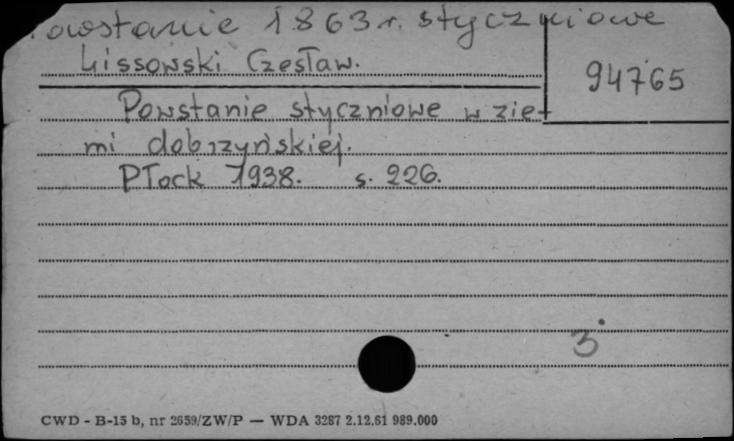 Powstanie 1863 r. styczniowe
Lissowski Czesław.
94765
Powstanie styczniowe w zie-
mi dobrzyńskiej.
Płock 1938. s. 226.
3
CWD - B-15 b, nr 2659/ZW/P — WDA 3287 2.12.61 989.000